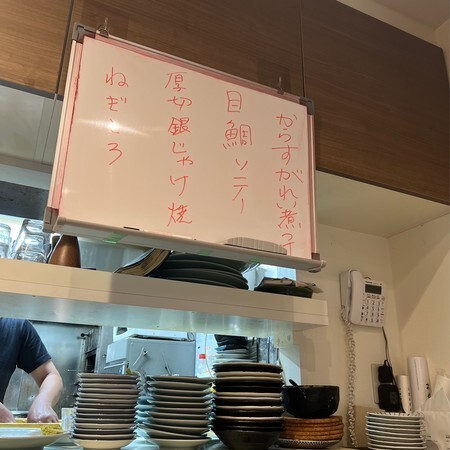 からすがれい煮つけ
目鯛ソテー
厚切銀じゃけ焼
ねぎとろ